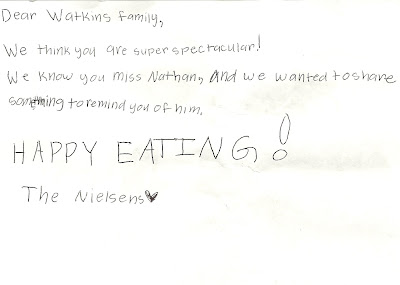 Dear Watkins family,
We think you are super spectacular!
We know you miss Nathan, And we wanted to share
something to remind you of him.
HAPPY EATING!
The Nielsens♥